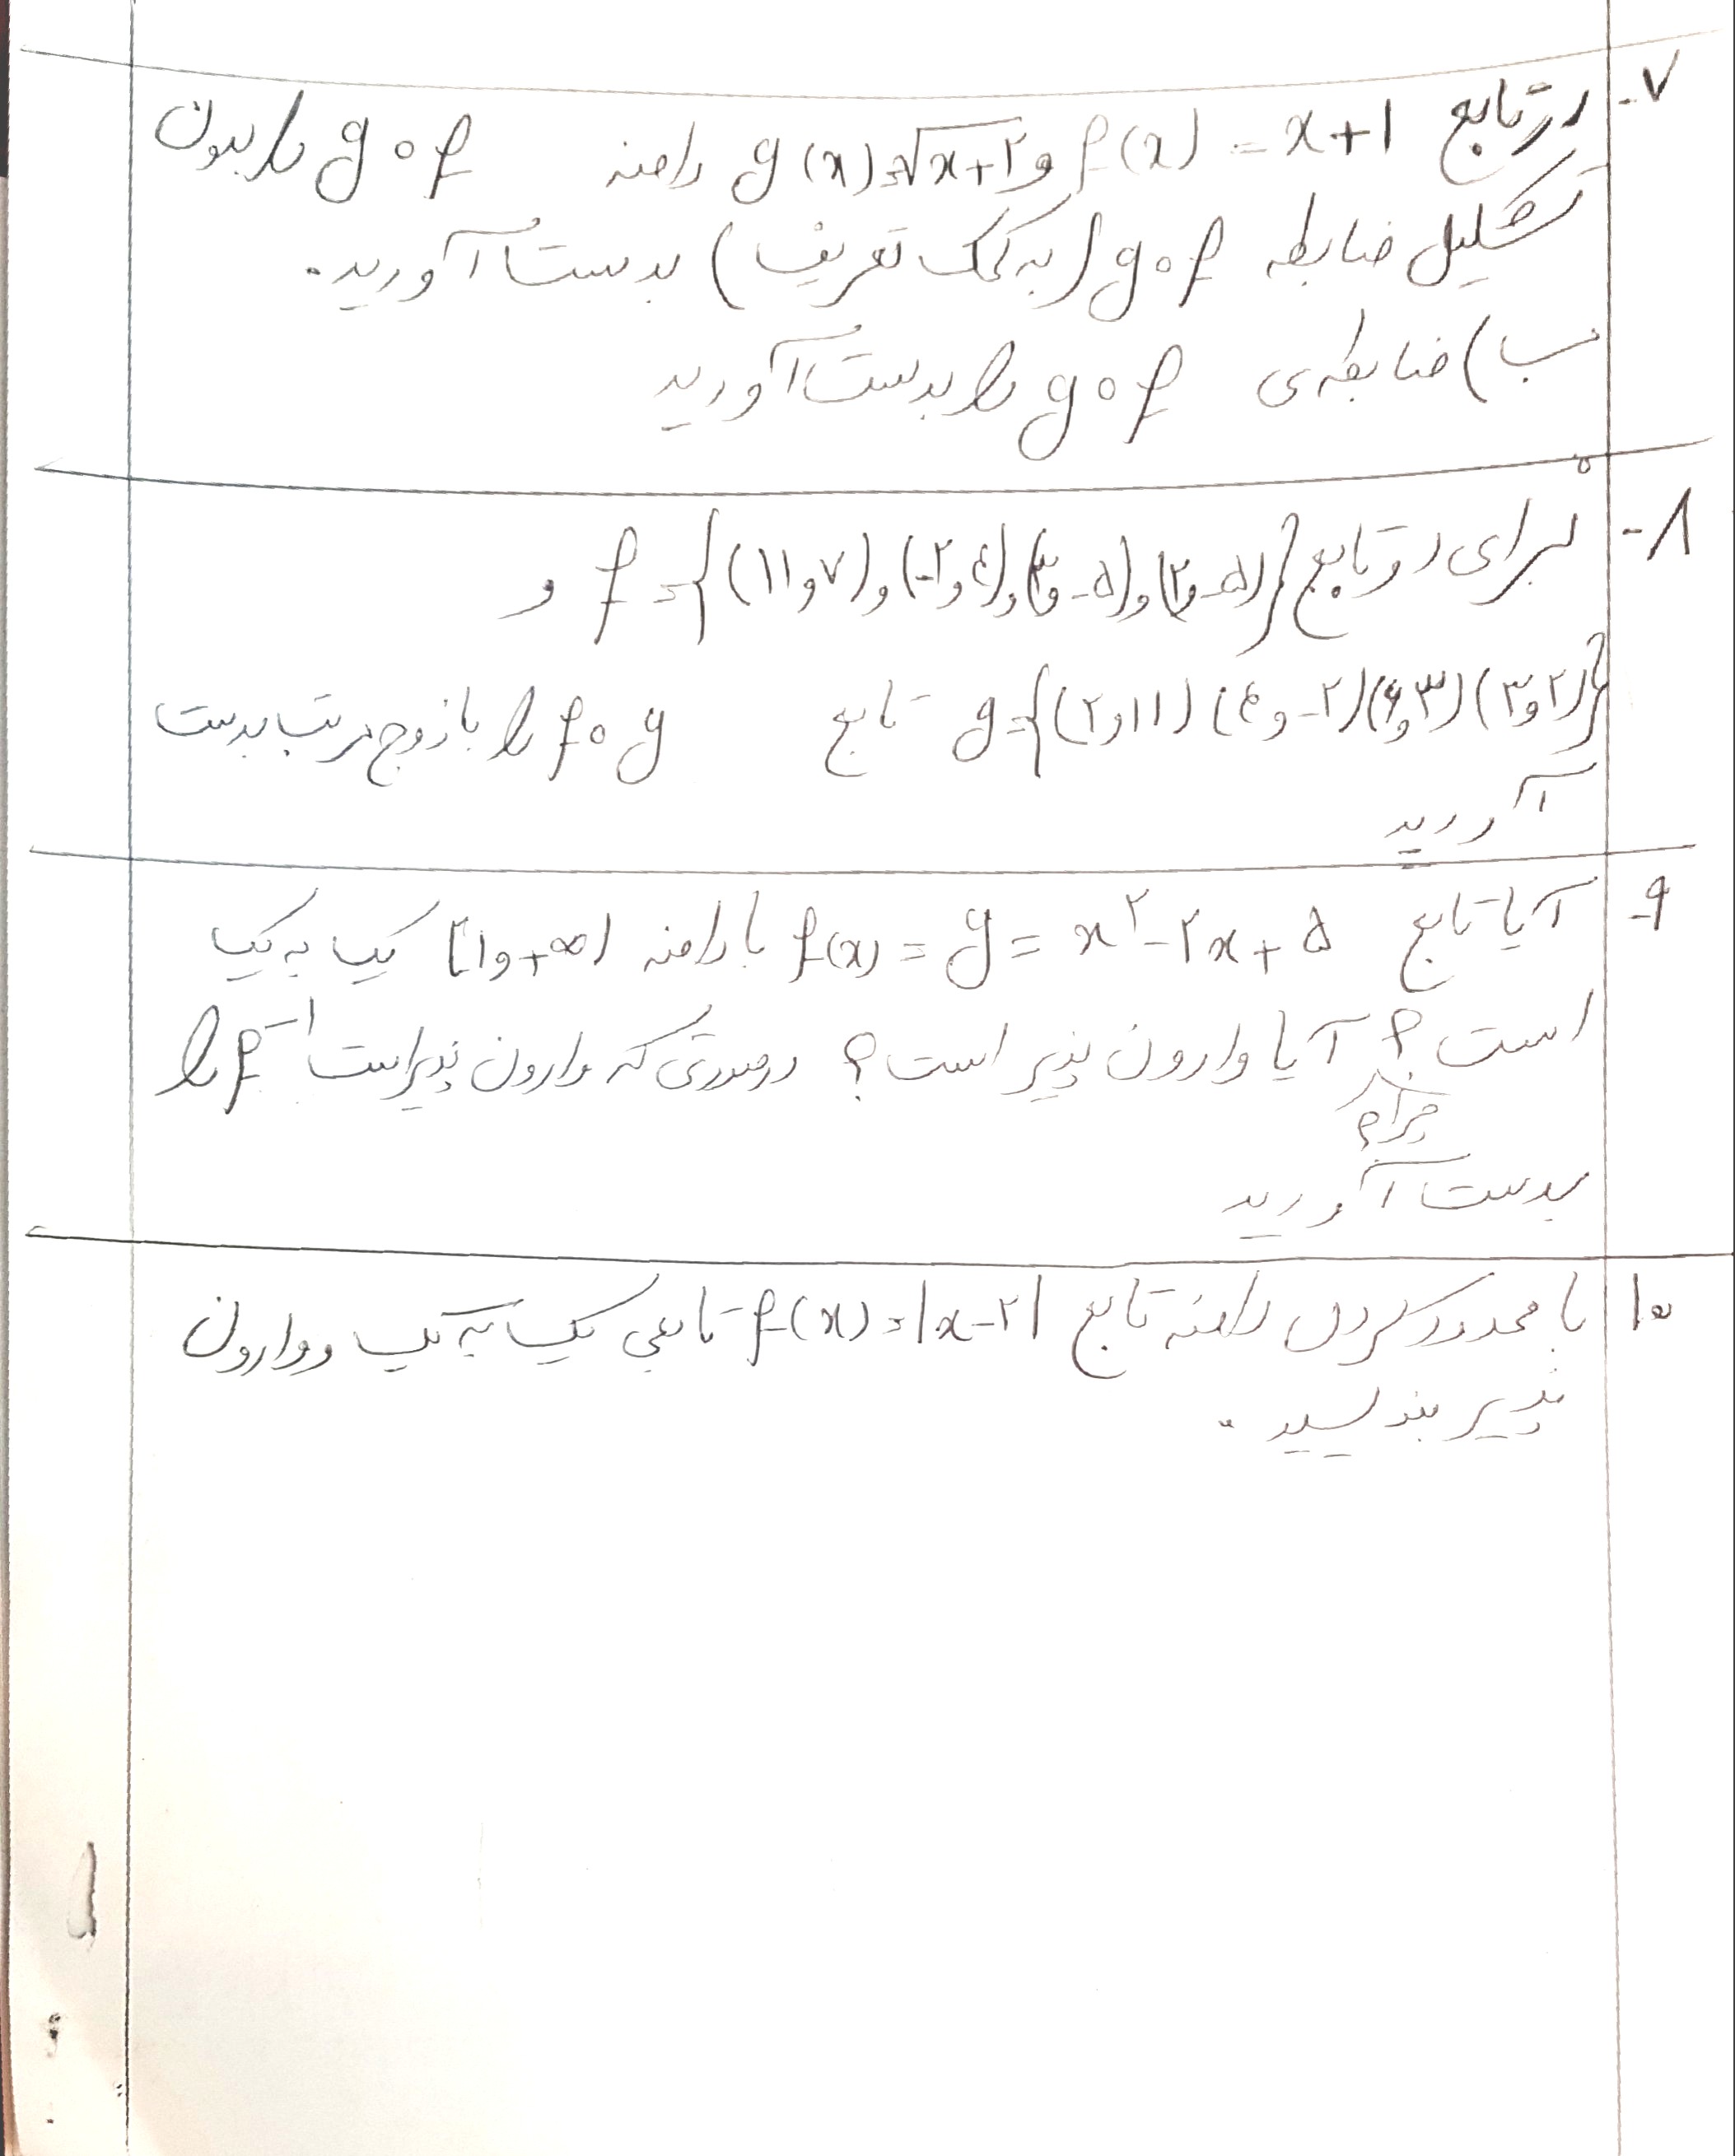 ۷- در تابع f(x) = x+1 و g(x)=√x+۲ دامنه gof را بدون
تشکیل ضابطه gof (به کمک تعریف) بدست آورید.
ب) ضابطه‌ی gof را بدست آورید
۸- برای دو تابع f = {(۱۱و۷)و(-۲و۴)و(۳و-۵)و(۲و-۵)} و
g={(۲و۱۱)(۴و-۲)(۶و۳)(۳و۲)} تابع fog را با زوج مرتب بدست
آورید
۹- آیا تابع f(x) = y = x^۲-۲x+۵ با دامنه [۱و+∞) یک به یک
است؟ آیا وارون پذیر است؟ درصورتی که وارون پذیر است f^-۱ را
چرا؟
بدست آورید
۱۰ با محدود کردن دامنه تابع f(x)=|x-۲| تابعی یک به یک و وارون
پذیر بنویسید.